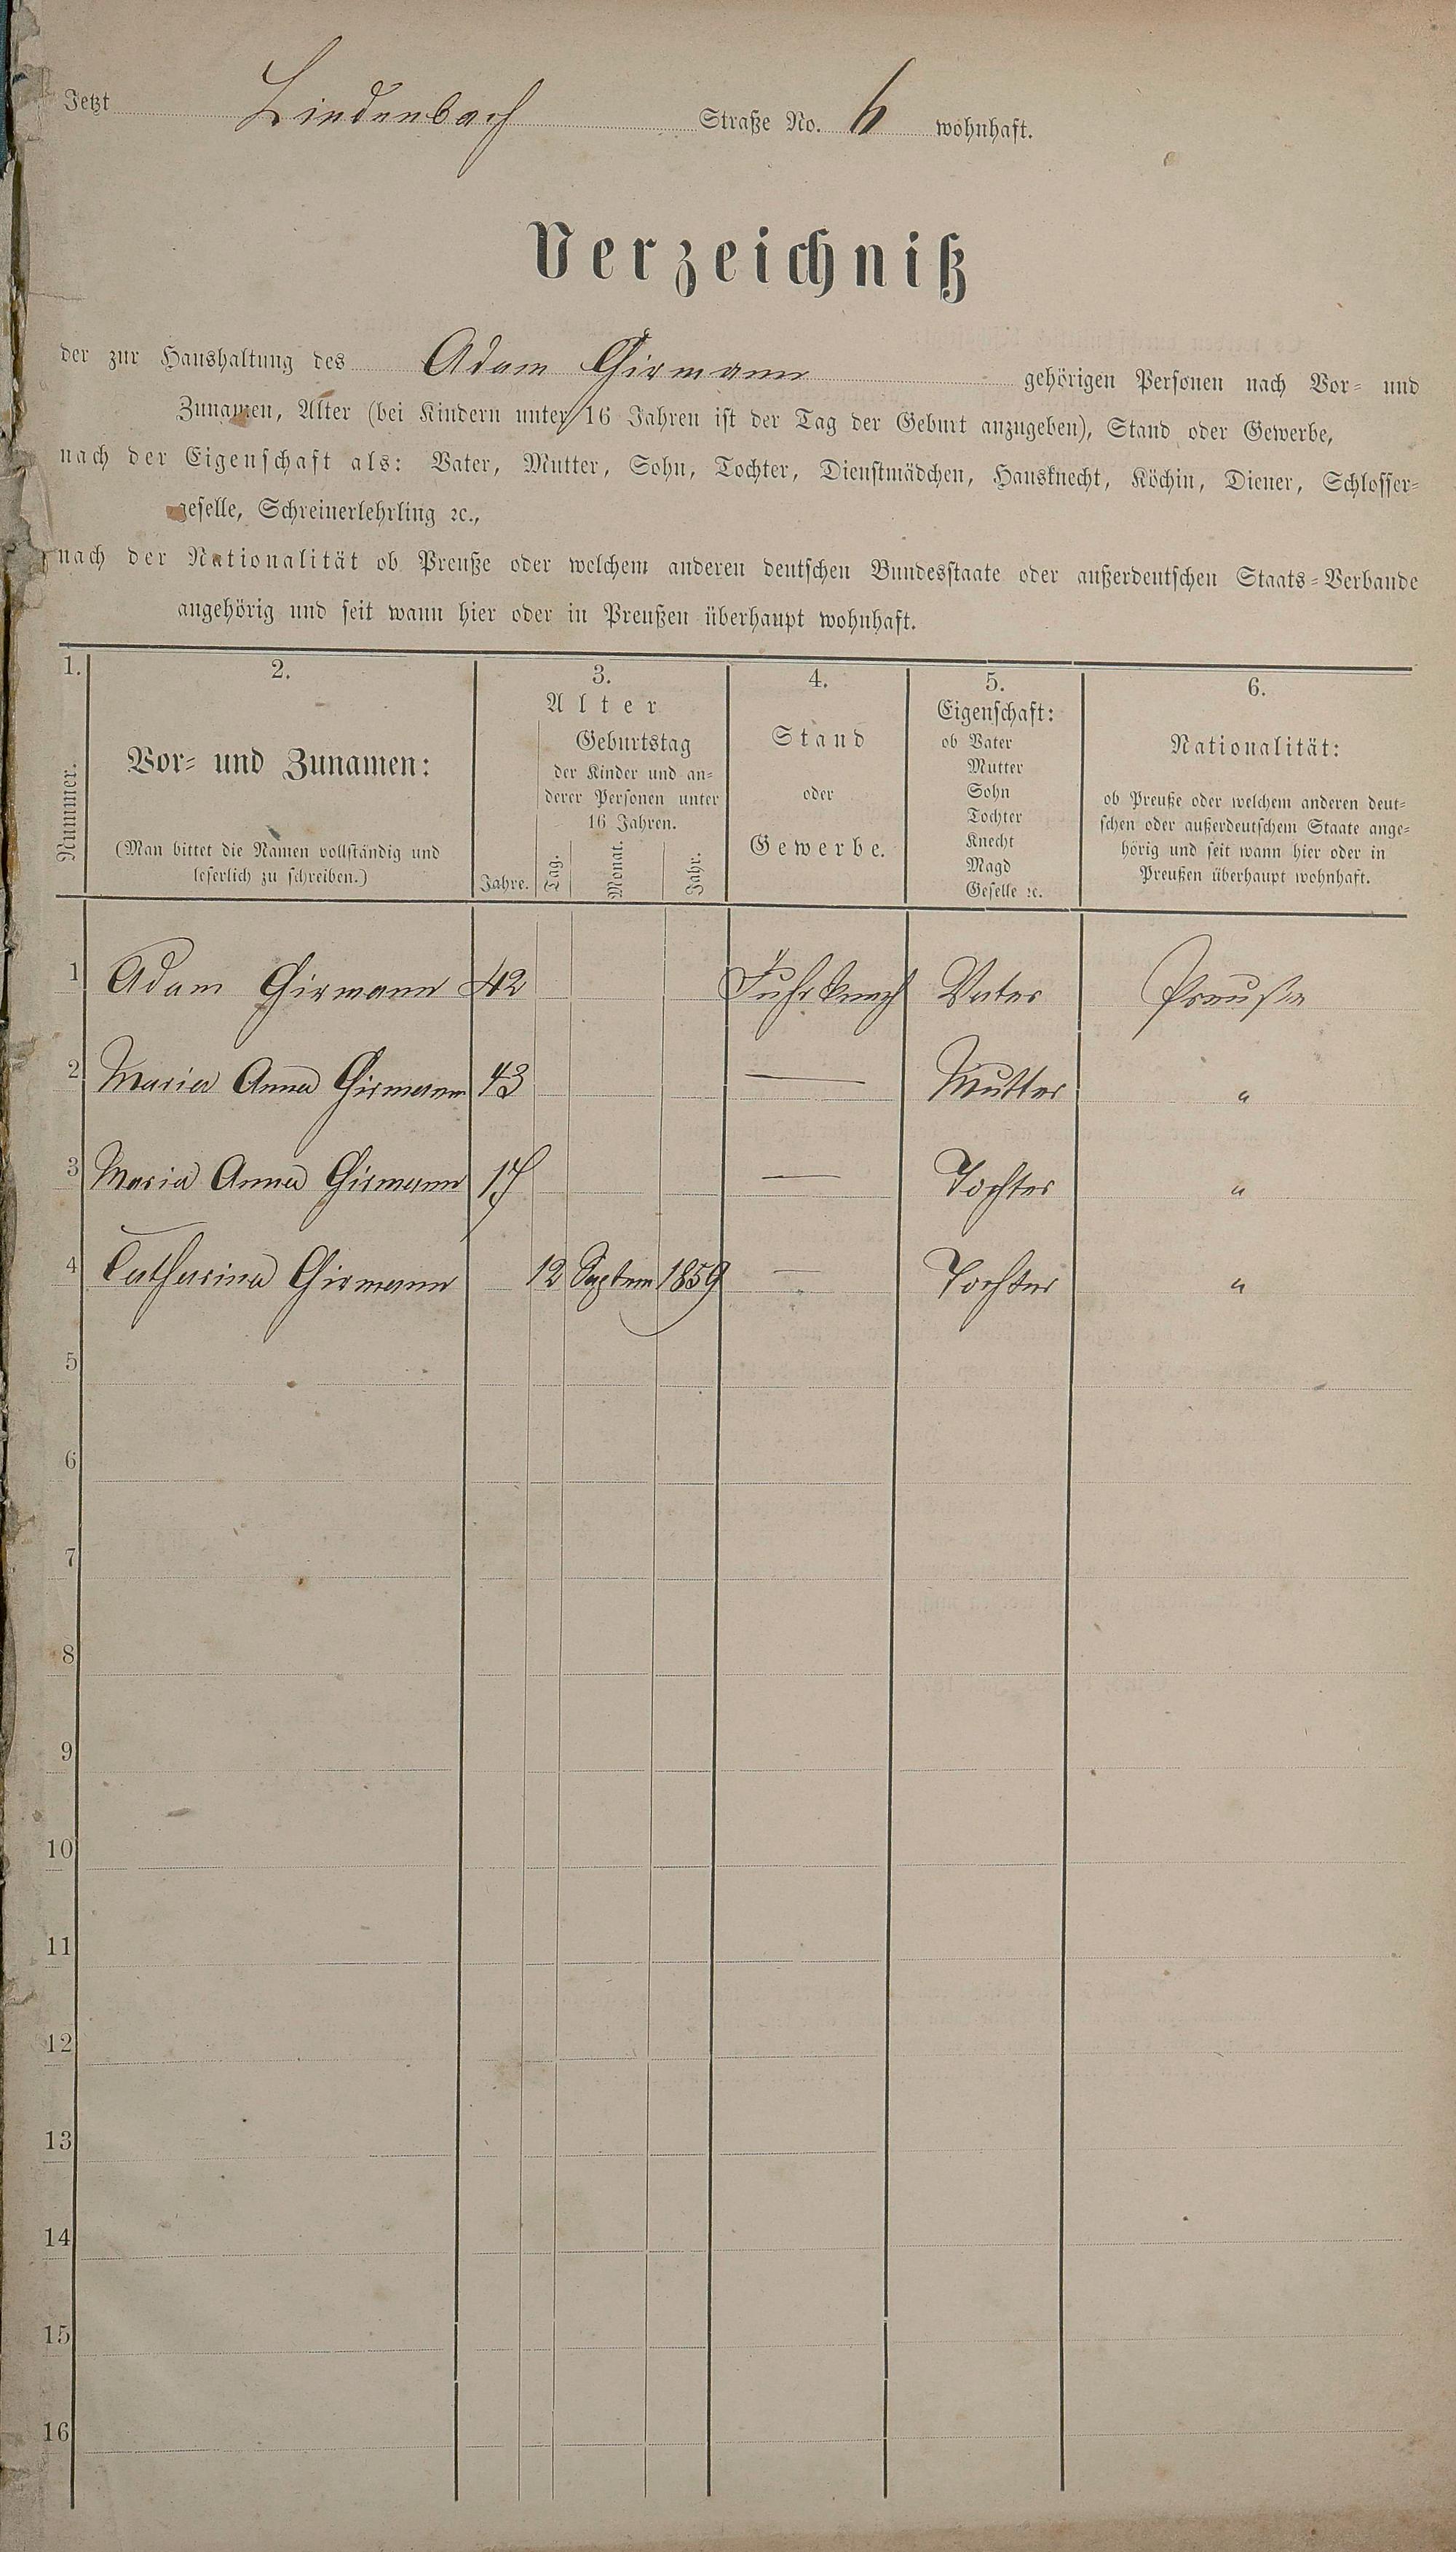 Jetzt Lindenbach Straße No. 6 wohnhaft.
Verzeichniß
der zur Haushaltung des Adam Girmann gehörigen Personen nach Vor- und
Zunamen, Alter (bei Kindern unter 16 Jahren ist der Tag der Geburt anzugeben), Stand oder Gewerbe,
nach der Eigenschaft als: Vater, Mutter, Sohn, Tochter, Dienstmädchen, Hausknecht, Köchin, Diener, Schlosser-
geselle, Schreinerlehrling ꝛc.,
nach der Nationalität ob Preuße oder welchem anderen deutschen Bundesstaate oder außerdeutschen Staats-Verbande
angehörig und seit wann hier oder in Preußen überhaupt wohnhaft.
1.
Nummer.
2.
Vor- und Zunamen:
(Man bittet die Namen vollständig und
leserlich zu schreiben.)
3.
Alter
Jahre.
Geburtstag
der Kinder und an-
derer Personen unter
16 Jahren.
Tag. Monat. Jahr.
4.
Stand
oder
Gewerbe.
5.
Eigenschaft:
ob Vater
Mutter
Sohn
Tochter
Knecht
Magd
Geselle ꝛc.
6.
Nationalität:
ob Preuße oder welchem anderen deut-
schen oder außerdeutschem Staate ange-
hörig und seit wann hier oder in
Preußen überhaupt wohnhaft.
1 Adam Girmann 42 Fuhrknech Vater Preuße
2 Maria Anna Girmann 43 — Mutter "
3 Maria Anna Girmann 17 — Tochter "
4 Catharina Girmann 12 Septem 1859 — Tochter "
5
6
7
8
9
10
11
12
13
14
15
16